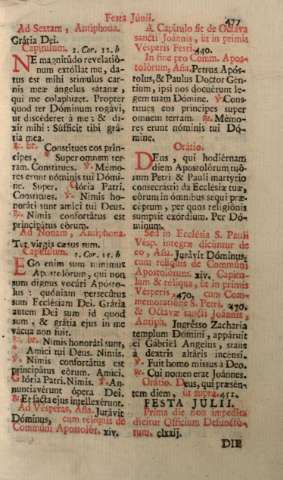 Festa Júnii.
477
Ad Sextam, Antiphona.
Grátia Dei.
Capítulum. 2. Cor. 12. b
NE magnitúdo revelatió-
num extóllat me, da-
tus est mihi stimulus car-
nis meæ ángelus sátanæ,
qui me colaphízet. Propter
quod ter Dóminum rogávi,
ut discéderet à me: & di-
xit mihi: Súfficit tibi grá-
tia mea.
℟. br. Constítues eos prín-
cipes, Super omnem ter-
ram. Constítues. ℣. Mémo-
res erunt nóminis tui Dómi-
ne. Super. Glória Patri.
Constítues. ℣. Nimis ho-
noráti sunt amíci tui Deus.
℟. Nimis confortátus est
principátus eórum.
Ad Nonam, Antiphona.
Ter virgis cæsus sum.
Capítulum. 1. Cor. 15. b
EGo enim sum mínimus
Apostolórum, qui non
sum dignus vocári Apósto-
lus: quóniam persecútus
sum Ecclésiam Dei. Grátia
autem Dei sum id quod
sum, & grátia ejus in me
vácua non fuit.
℟. br. Nimis honoráti sunt,
Amíci tui Deus. Nimis.
℣. Nimis confortátus est
principátus eórum. Amíci.
Glória Patri. Nimis. ℣. An-
nunciavérunt ópera Dei.
℟. Et facta ejus intellexérunt.
Ad Vesperas, Aña. Jurávit
Dóminus, cum reliquis de
Communi Apostolor. xiv.
A Capitulo fit de Octava
sancti Joannis, ut in primis
Vesperis Festi. 440.
In fine pro Comm. Apos-
tolórum, Aña. Petrus Após-
tolus, & Paulus Doctor Gén-
tium, ipsi nos docuérunt le-
gem tuam Dómine. ℣. Cons-
títues eos príncipes super
omnem terram. ℟. Mémo-
res erunt nóminis tui Dó-
mine.
Orátio.
DEus, qui hodiérnam
diem Apostolórum tuó-
rum Petri & Pauli martýrio
consecrásti: da Ecclésiæ tuæ,
eórum in ómnibus sequi præ-
céptum, per quos religiónis
sumpsit exórdium. Per Dó-
minum.
Sed in Ecclesia S. Pauli
Vesp. integræ dicuntur de
eo, Aña. Jurávit Dóminus,
cum reliquis de Communi
Apostolorum. xiv. Capitu-
lum & reliqua, ut in primis
Vesperis. 470. cum Com-
memoratione S. Petri. 470.
& Octavæ sancti Joannis:
Antiph. Ingrésso Zacharía
templum Dómini, appáruit
ei Gábriel Angelus, stans
à dextris altáris incénsi.
℣. Fuit homo missus à Deo.
℟. Cui nomen erat Joánnes.
Orátio. Deus, qui præsén-
tem diem, ut supra. 451.
FESTA JULII.
Prima die non impedita
dicitur Officium Defuncto-
rum. clxxij.
DIE